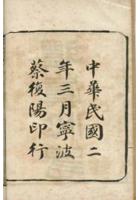 中華民國二
年三月寧波
蔡復陽印行